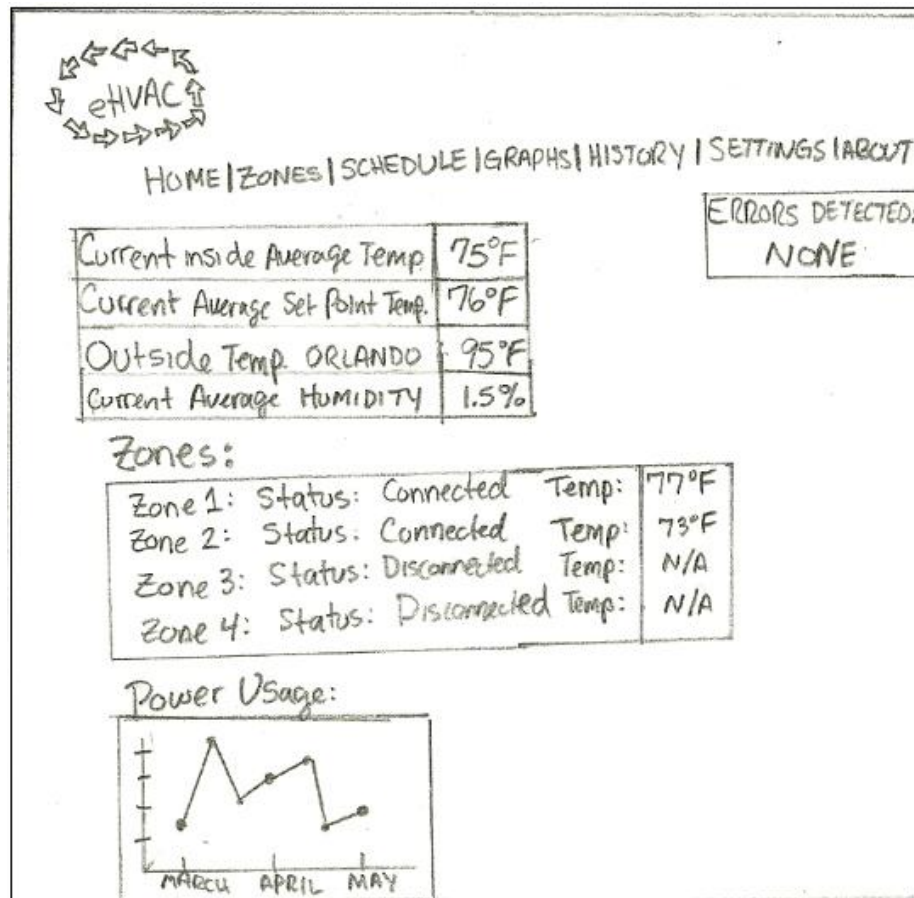 eHVAC
HOME | ZONES | SCHEDULE | GRAPHS | HISTORY | SETTINGS | ABOUT
ERRORS DETECTED:
NONE
Current inside Average Temp 75°F
Current Average Set Point Temp. 76°F
Outside Temp. ORLANDO 95°F
Current Average HUMIDITY 1.5%
Zones:
Zone 1: Status: Connected Temp: 77°F
Zone 2: Status: Connected Temp: 73°F
Zone 3: Status: Disconnected Temp: N/A
Zone 4: Status: Disconnected Temp: N/A
Power Usage:
MARCH APRIL MAY